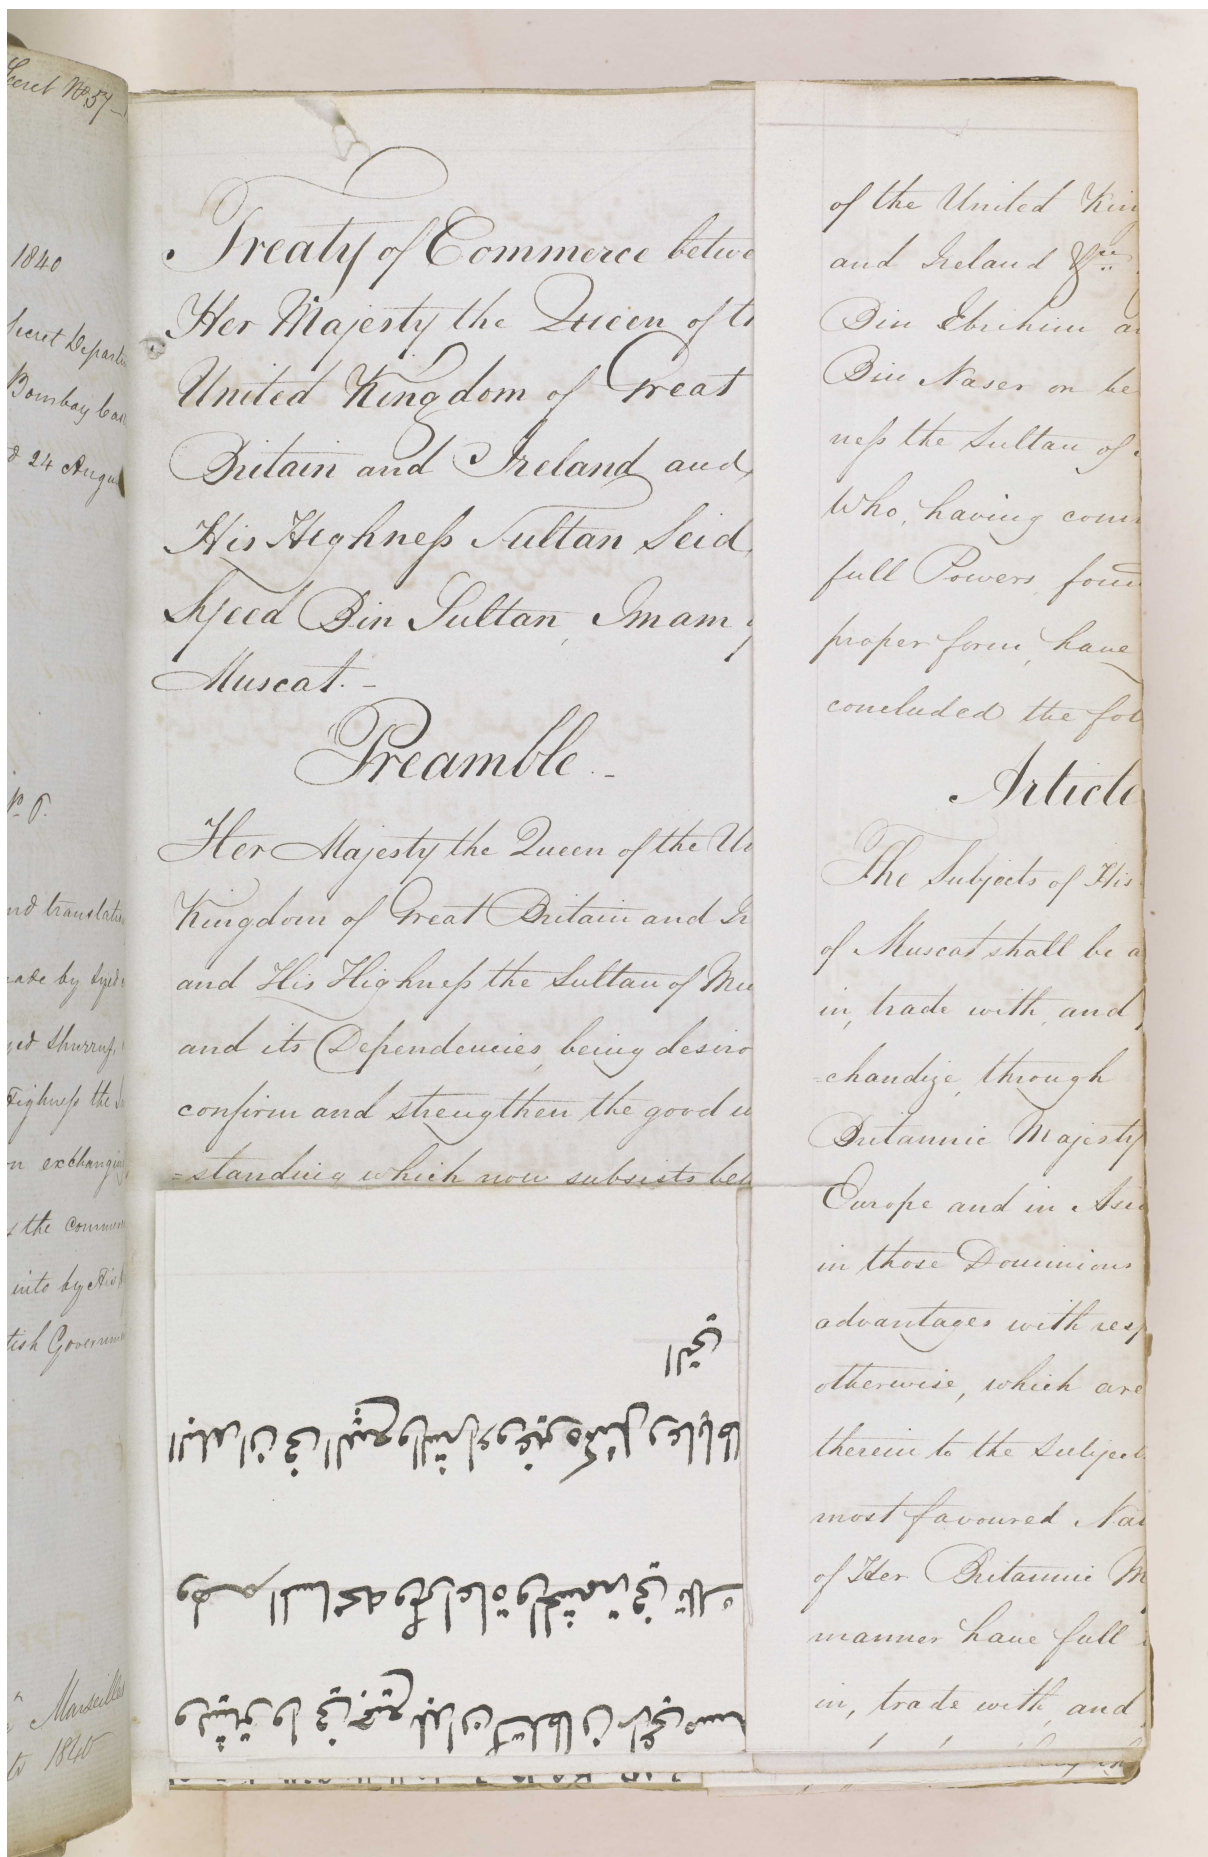 Secret No. 57
1840
Secret Depart
Bombay Cas
24 Augu
nd translatio
made by Syed
Highness the
n exchanging
s the commer
into by His
tish Governm
Marseilles
1840
Treaty of Commerce betwe
Her Majesty the Queen of t
United Kingdom of Great
Britain and Ireland and
His Highness Sultan Seid
Syeed Bin Sultan, Imam
Muscat. -
Preamble. -
Her Majesty the Queen of the Un
Kingdom of Great Britain and Ir
and His Highness the Sultan of Mu
and its Dependencies, being desiro
confirm and strengthen the good u
=standing which now subsists bet
of the United Kin
and Ireland &ca
Bin Ebrihim an
Bin Naser on be
ness the Sultan of
Who, having com
full Powers, foun
proper form, have
concluded the fol
Article
The Subjects of His
of Muscat shall be a
in, trade with, and
=chandize, through
Britannic Majesty
Europe and in Asi
in those Dominions
advantages with resp
otherwise, which are
therein to the Subject
most favoured Nat
of Her Britannic M
manner have full
in, trade with, and
ويشترون في جميع بلدان السلطان
وهم المساعدة والمراعاة والحشمة في تلك
البلدان في البيع والشراء وغيره مثل رعايا
التي